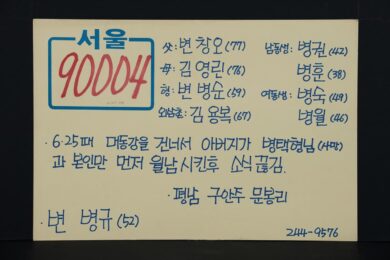 서울
90004
父: 변창오(77)
母: 김영린(76)
형: 변병순(59)
외삼촌: 김용복(67)
남동생: 병권(42)
병훈(38)
여동생: 병숙(49)
병월(46)
·6·25때 대동강을 건너서 아버지가 병택형님(사망)
과 본인만 먼저 월남시킨후 소식끊김.
·평남 구안주 문봉리
·변 병규(52)
244-9576